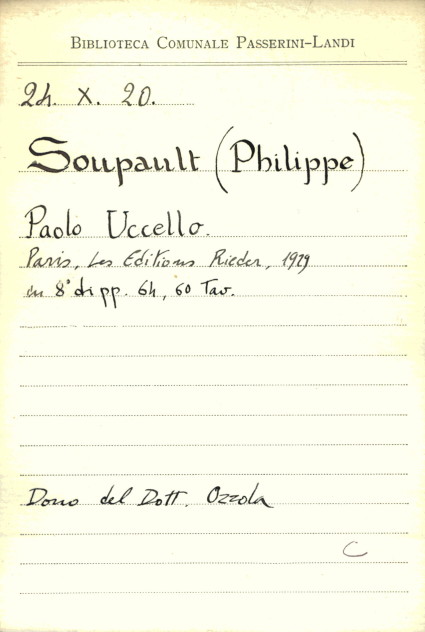 BIBLIOTECA COMUNALE PASSERINI-LANDI
24. X. 20.
Soupault (Philippe)
Paolo Uccello.
Paris, Les Editions Rieder, 1929
in 8° di pp. 64, 60 Tav.
Dono del Dott. Ozzola
C